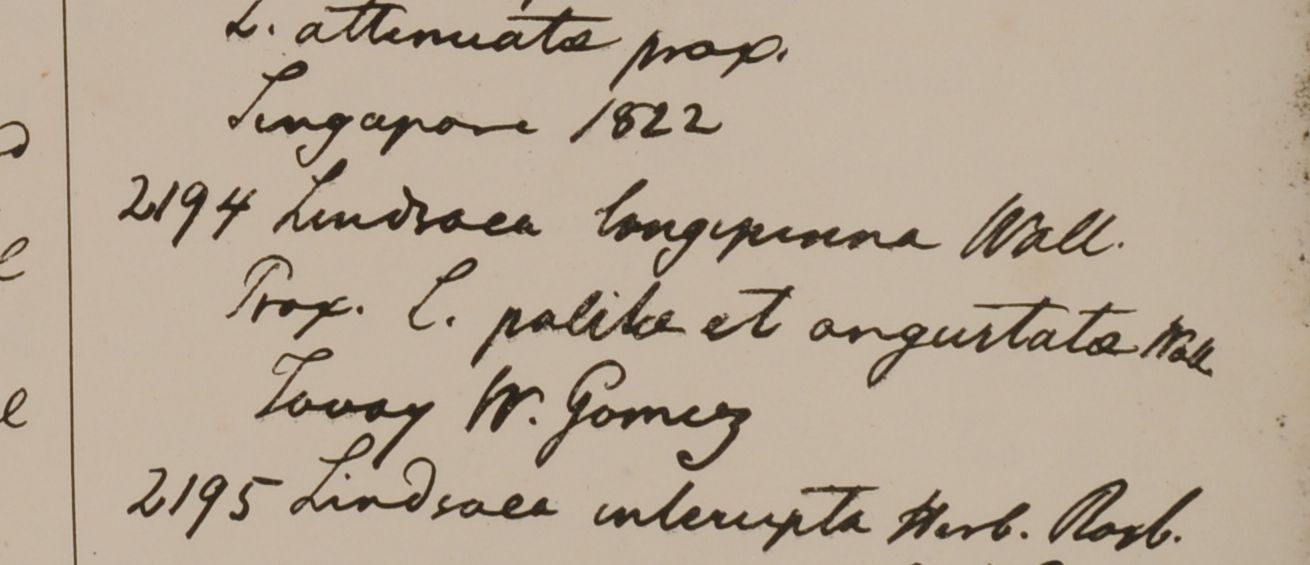 L. attenuatæ prox.
Singapore 1822
2194 Lindsaea longipinna Wall.
Prox. L. politæ et angustatæ Wall
Tavoy W. Gomez
2195 Lindsaea interrupta Herb. Roxb.